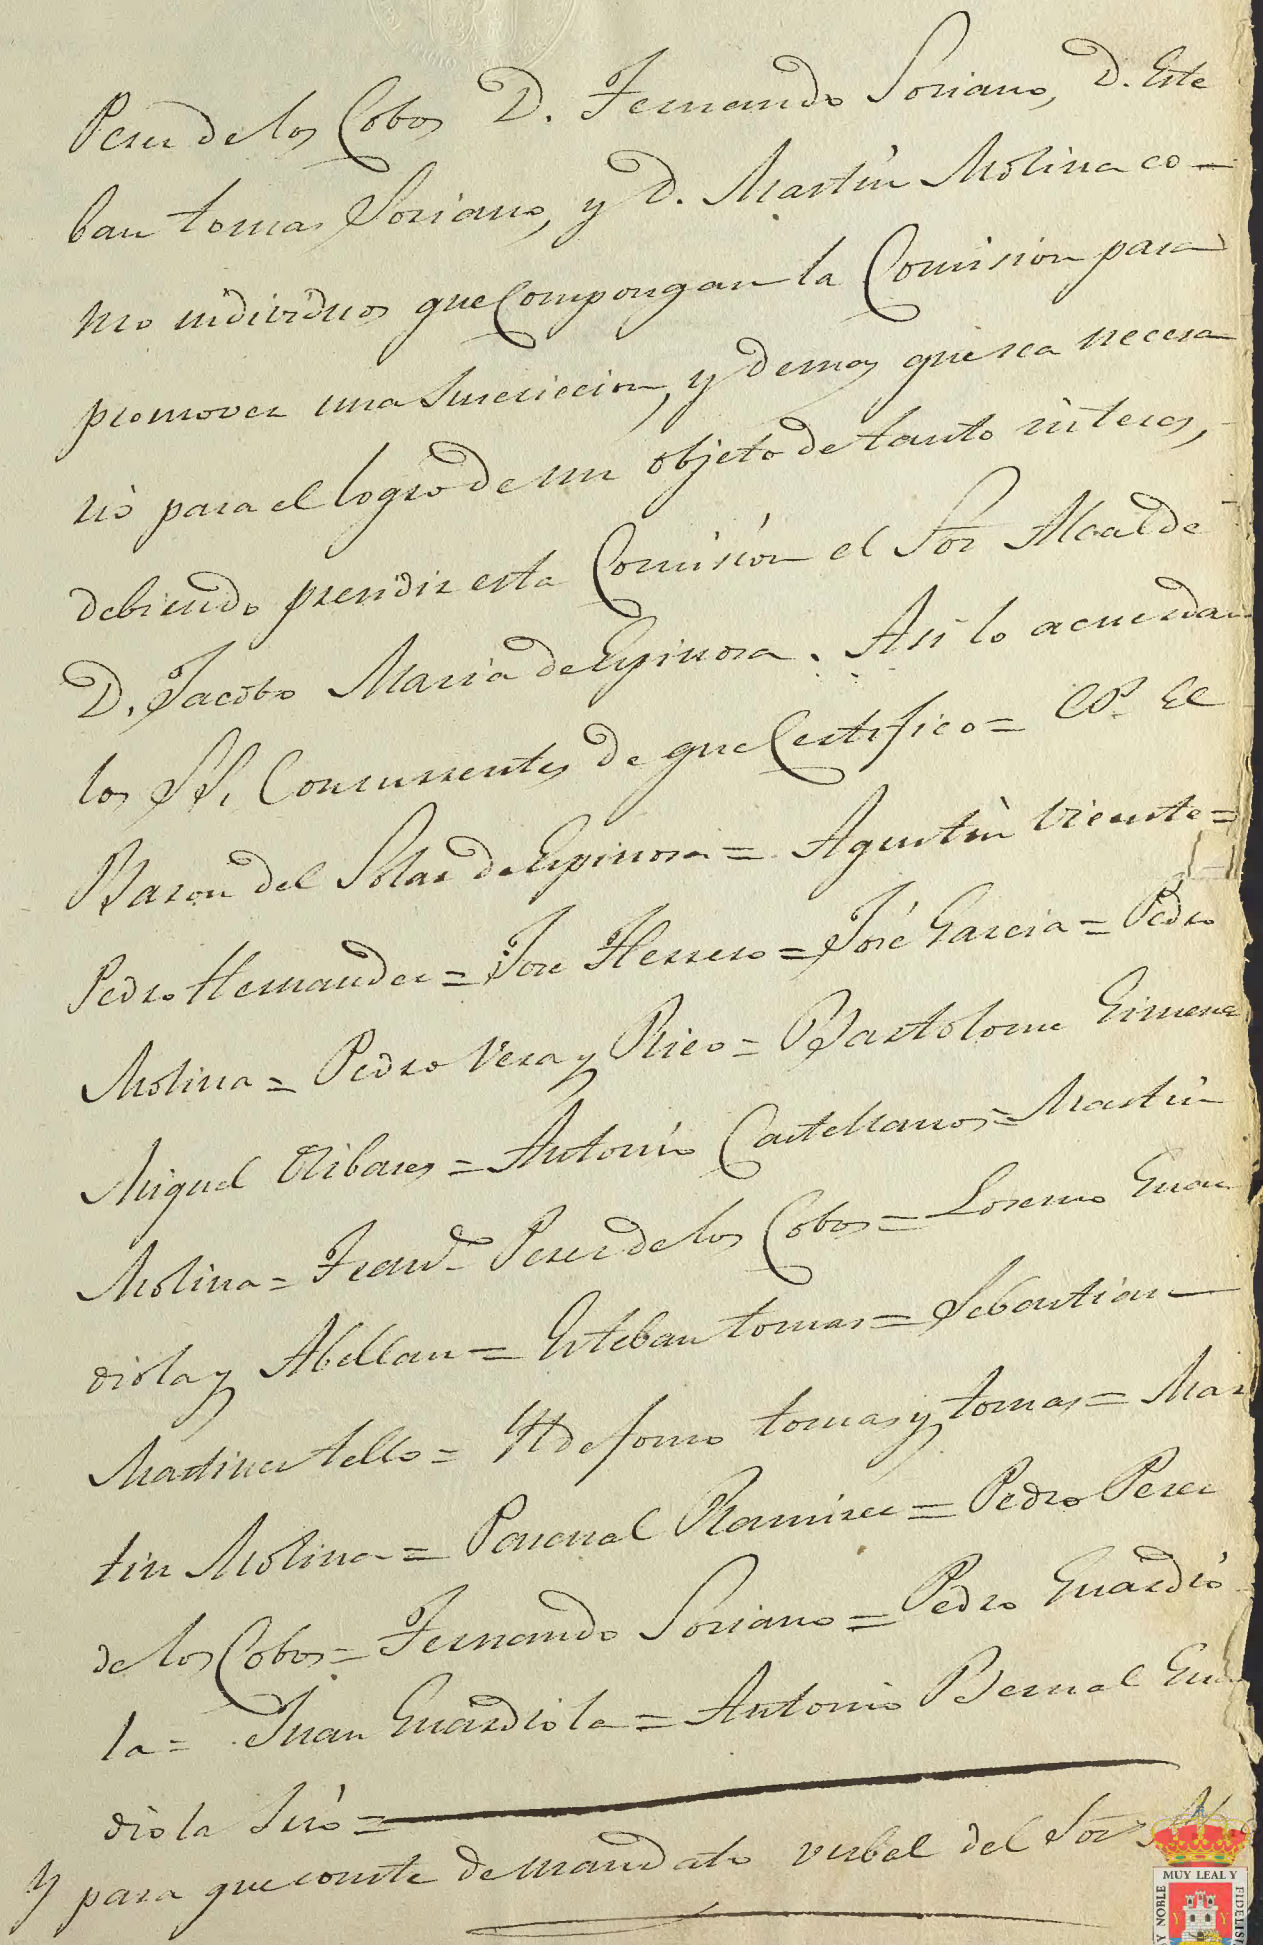 Perez de los Cobos D. Fernando Soriano, D. Este
ban tomas Soriano, y D. Martin Molina co-
mo individuos que Compongan la Comision para
promover una Suscricion, y demas que sea necesa
rio para el logro de un objeto de tanto interes,
debiendo presidir esta Comisión el Sor Alcalde
D. Jacobo Maria de Espinosa. Asi lo acuerdan
los SS. Concurrentes de que Certifico = El
Baron del Solar de Espinosa = Agustin Vicente =
Pedro Hernandez = Jose Herrero = José Garcia = Pedro
Molina = Pedro Vera y Rico = Bartolome Gimenez
Miguel Olibares = Antonio Castellanos = Martin
Molina = Franco Perez de los Cobos = Lorenzo Guar
diola y Abellan = Esteban tomas = Sebastian
Martinez tello = Yldefonso tomas y tomas = Mar
tin Molina = Pascual Ramirez = Pedro Perez
de los Cobos = Fernando Soriano = Pedro Guardio
la = Juan Guardiola = Antonio Bernal Guar
diola Srio =
Y para que conste de mandato verbal del Sor
MUY LEAL Y
Y NOBLE
FIDELIS